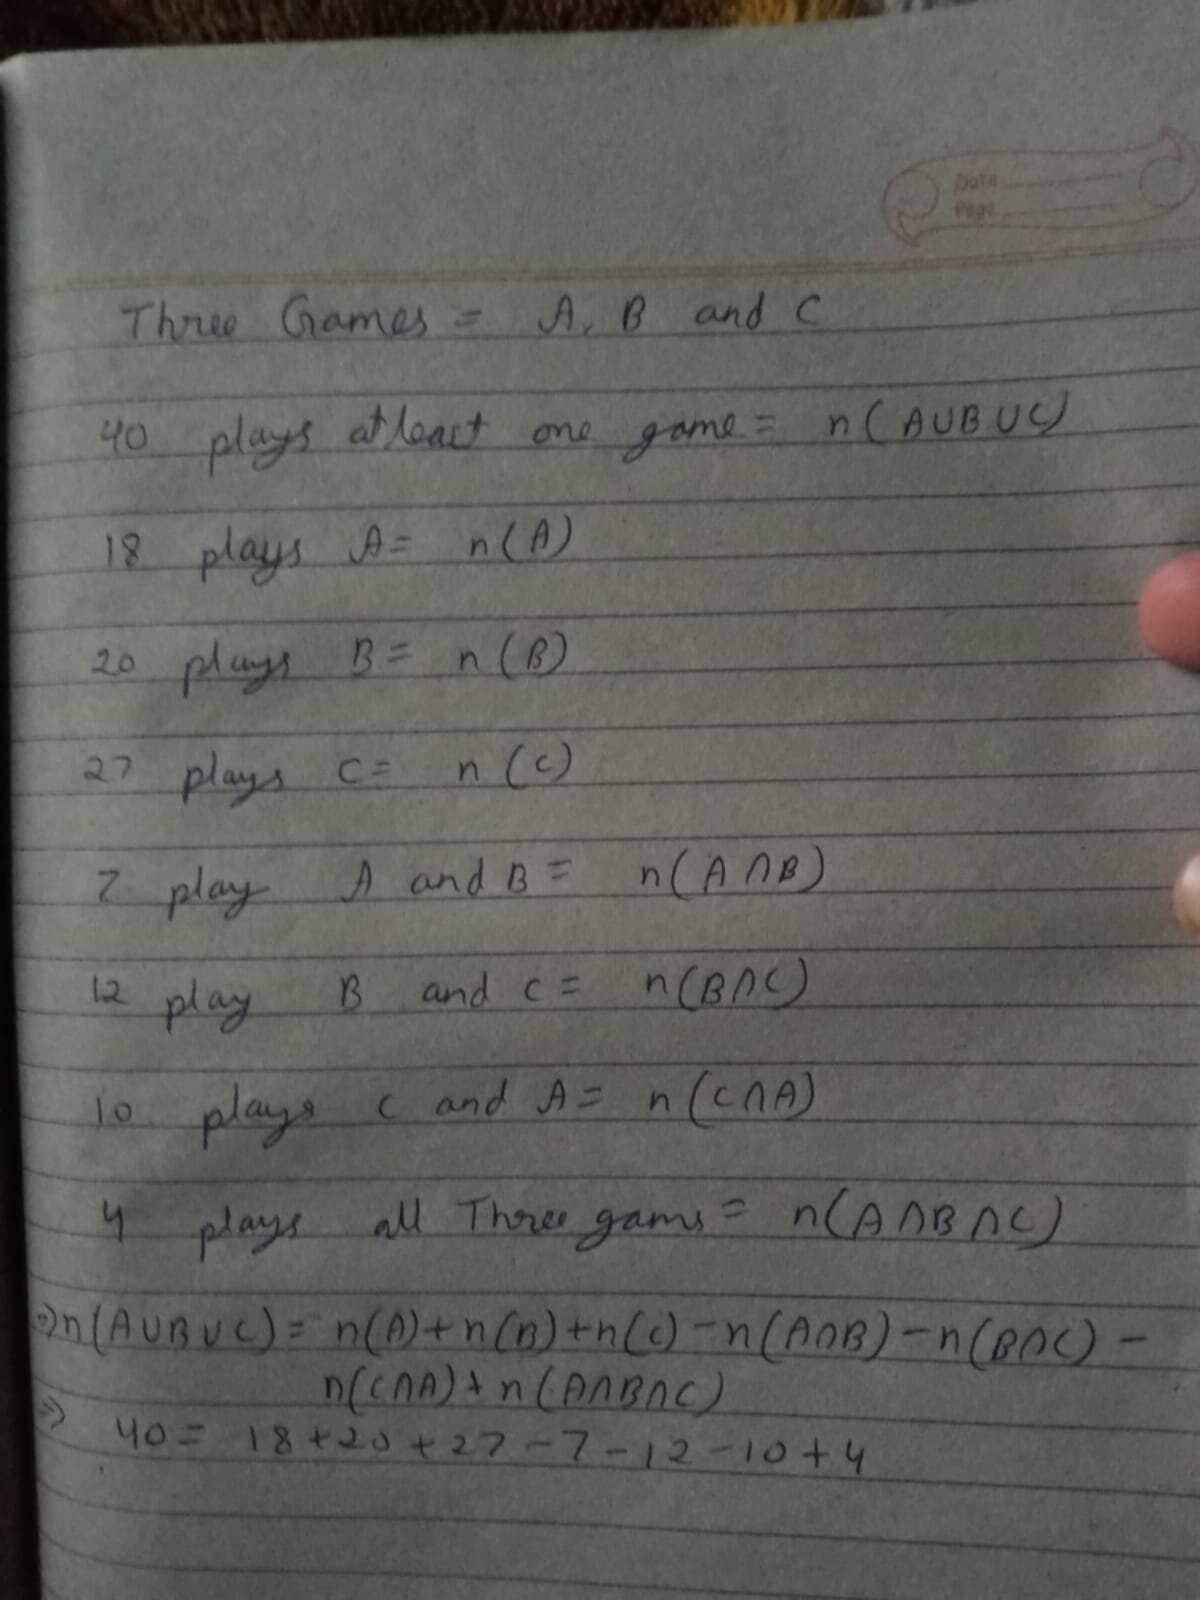 Date
Page
Three Games = A, B and C
40 plays atleast one game = n(A∪B∪C)
18 plays A = n(A)
20 plays B = n(B)
27 plays C = n(C)
7 play A and B = n(A∩B)
12 play B and C = n(B∩C)
10 plays C and A = n(C∩A)
4 plays all Three gams = n(A∩B∩C)
⇒ n(A∪B∪C) = n(A)+n(B)+n(C)-n(A∩B)-n(B∩C)-
n(C∩A)+n(A∩B∩C)
⇒ 40 = 18+20+27-7-12-10+4